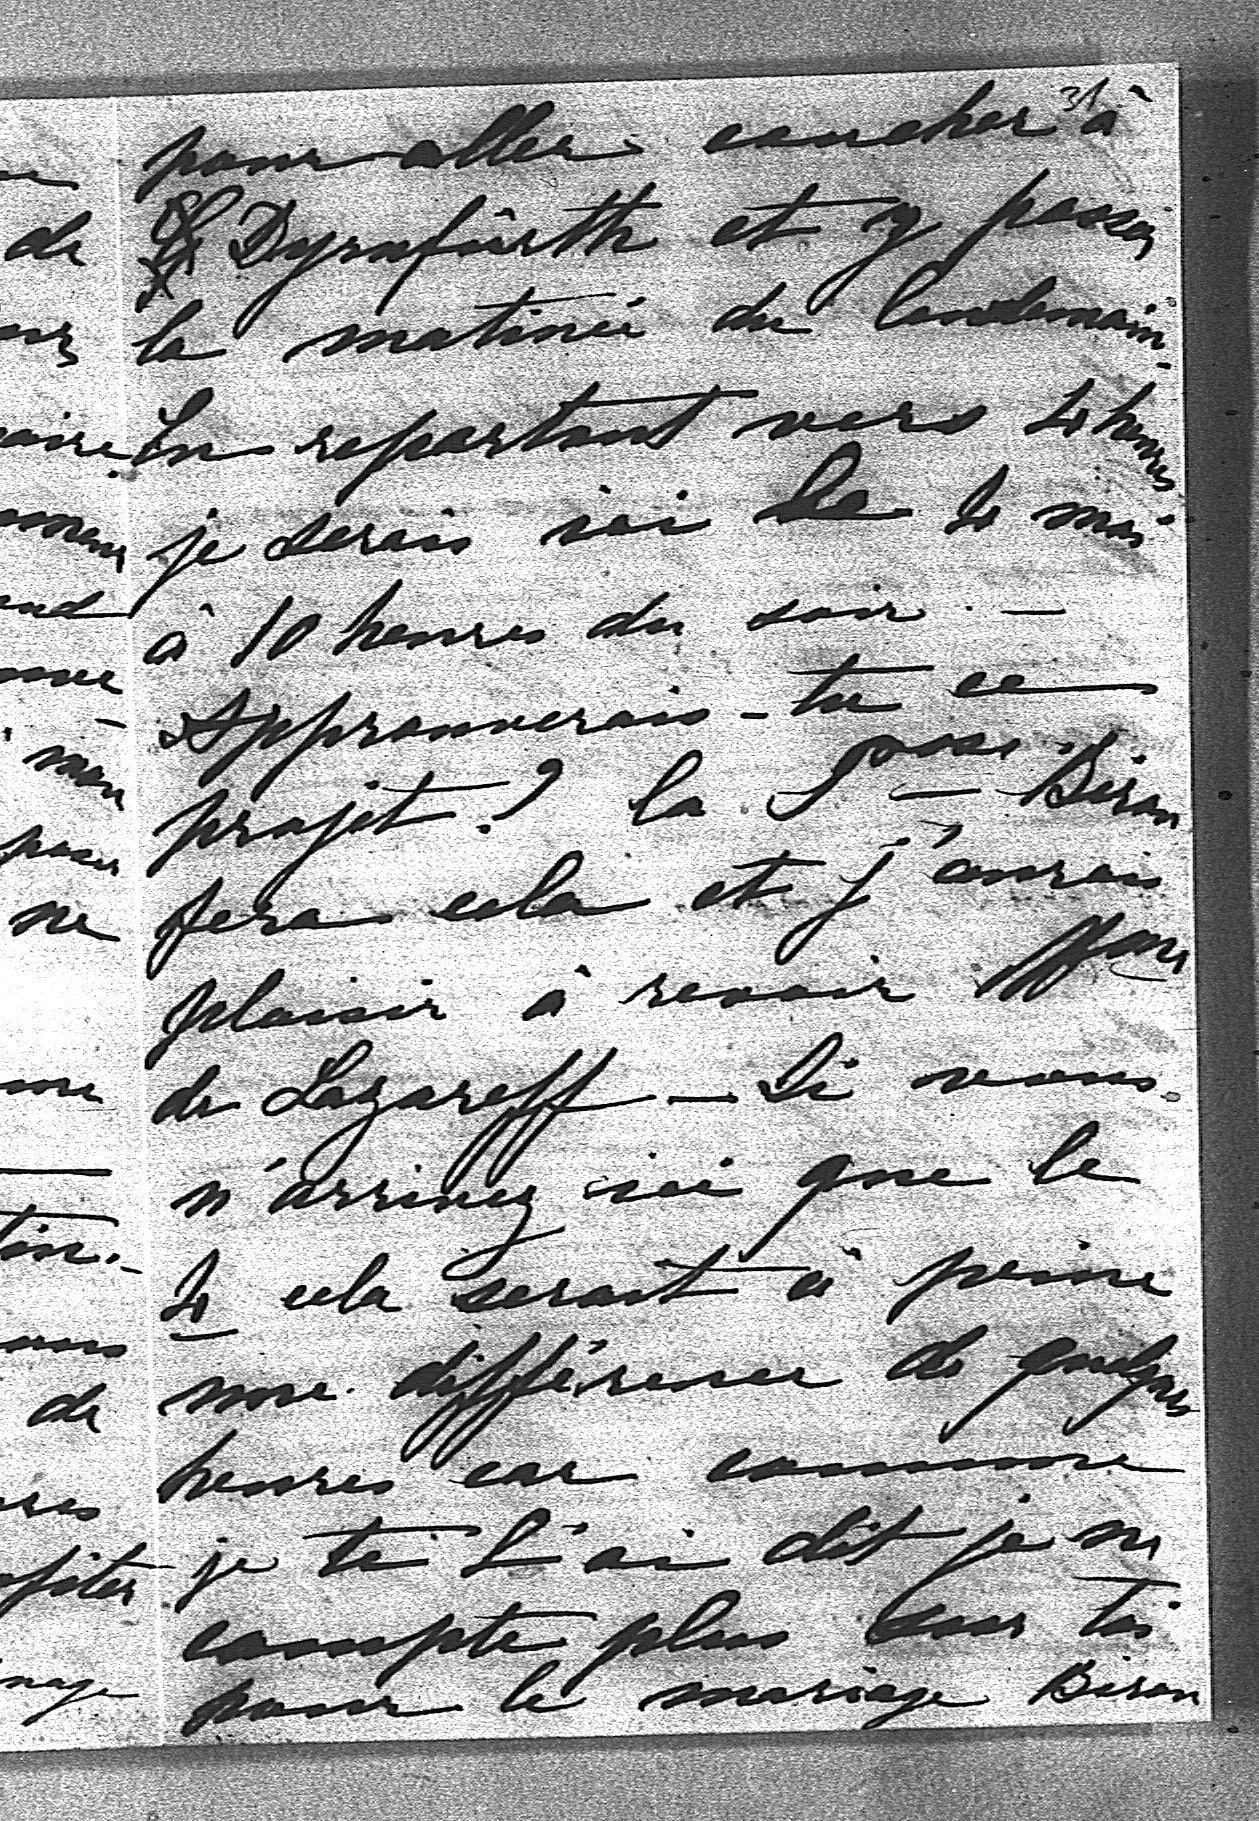 31
pour aller coucher à
Dyrnfürth et y passer
la matinée du lendemain.
En repartant vers 4 heures
je serais ici le 4 mai
à 10 heures du soir. —
Approuverais-tu ce
projet? la Psse Biron
fera cela et j'aurais
plaisir à revoir Mme
de Lazareff — Si vous
n'arrivez ici que le
4 cela serait à peine
une différence de quelques
heures car comme
je te l'ai dit je ne
compte plus sur toi
pour le mariage Biron